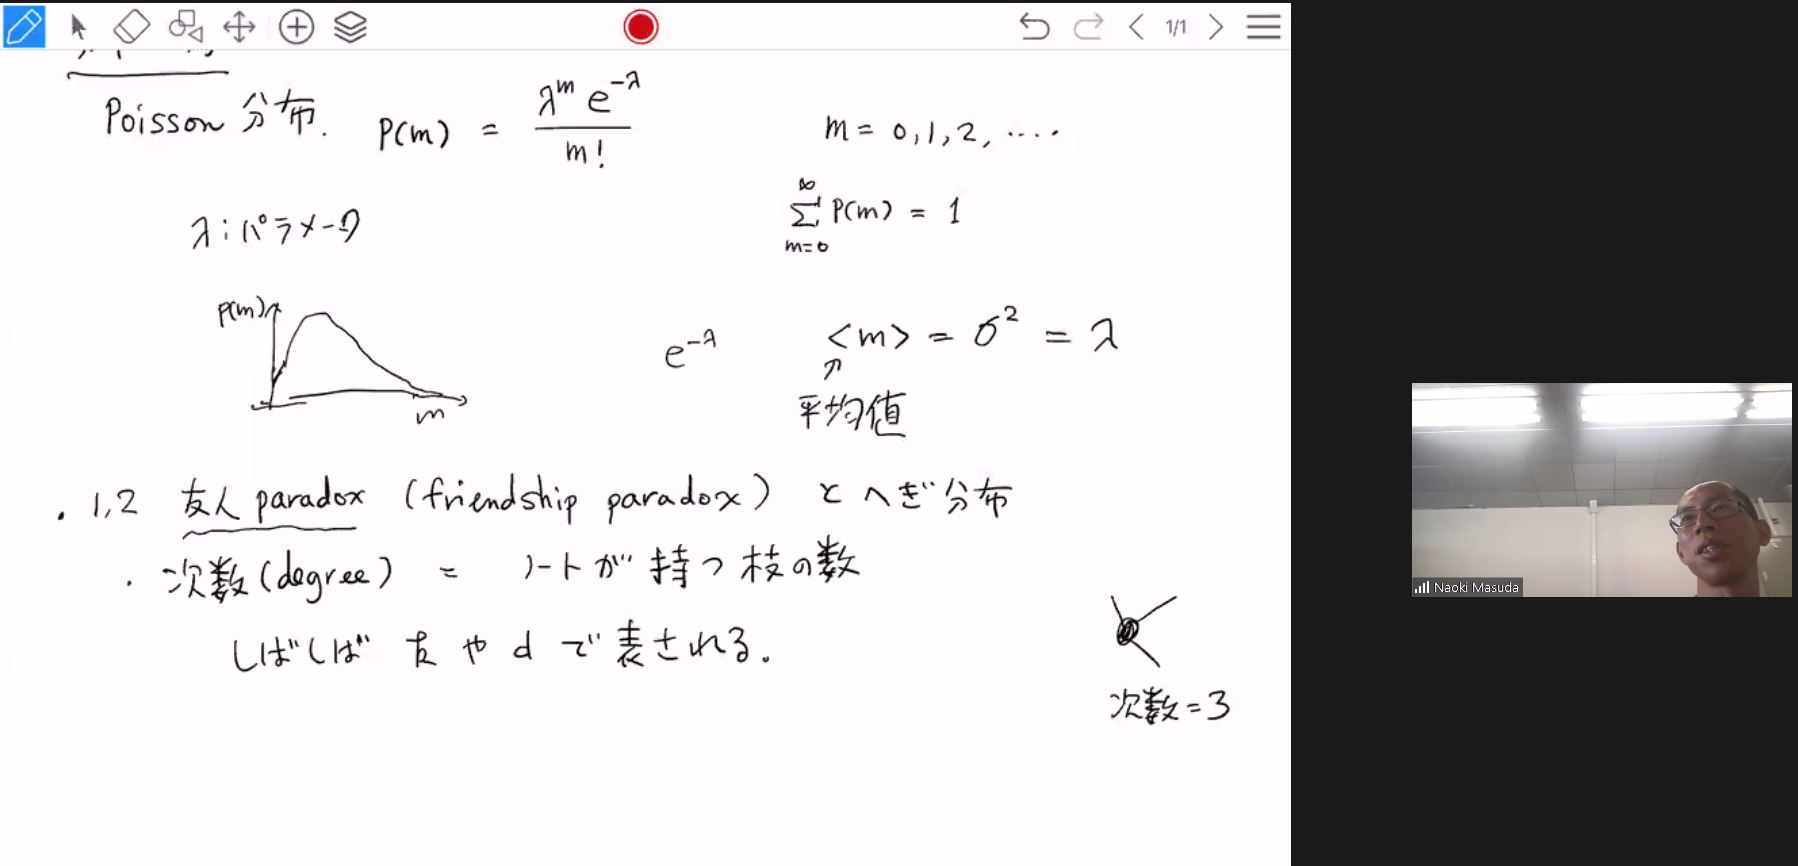 1/1
Poisson 分布. P(m) = λ^m e^{-λ} / m!
m = 0, 1, 2, ....
λ : パラメータ
∑_{m=0}^{∞} P(m) = 1
P(m)
m
e^{-λ}
<m> = σ^2 = λ
平均値
・1,2 友人 paradox (friendship paradox) とべき分布
・次数 (degree) = ノードが持つ枝の数
しばしば k や d で表される.
次数 = 3
Naoki Masuda